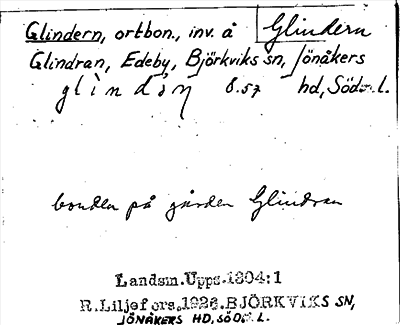 Glindern, ortbon., inv. å Glindern
Glindran, Edeby, Björkviks sn, Jönåkers
glìndə̀ṇ 8.57 hd, Söd. l.
bonden på gården Glindran
Landsm.Upps.1804:1
R.Liljefors.1926.BJÖRKVIKS SN,
JÖNÅKERS HD, SÖD. L.